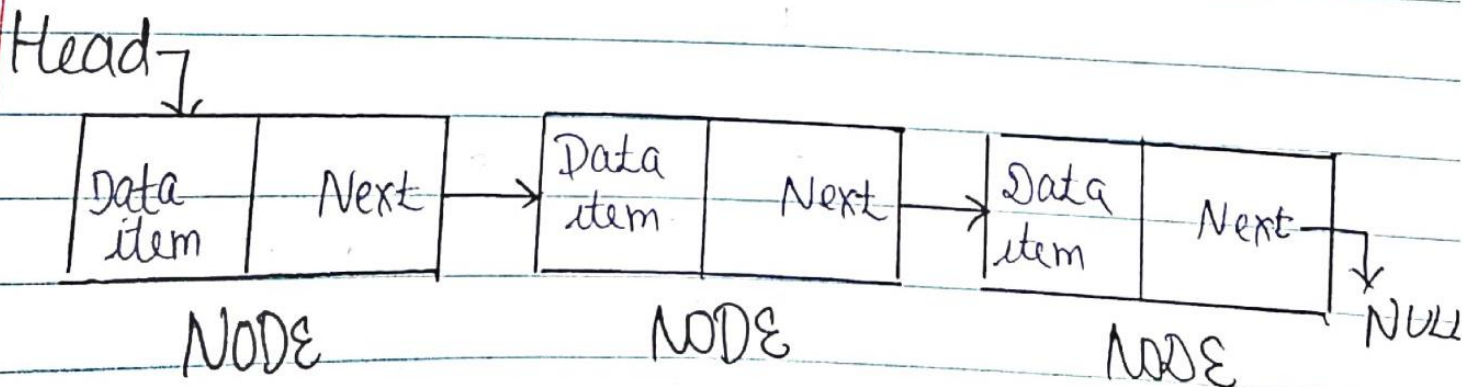 Head
Data item
Next
Data item
Next
Data item
Next
NULL
NODE
NODE
NODE